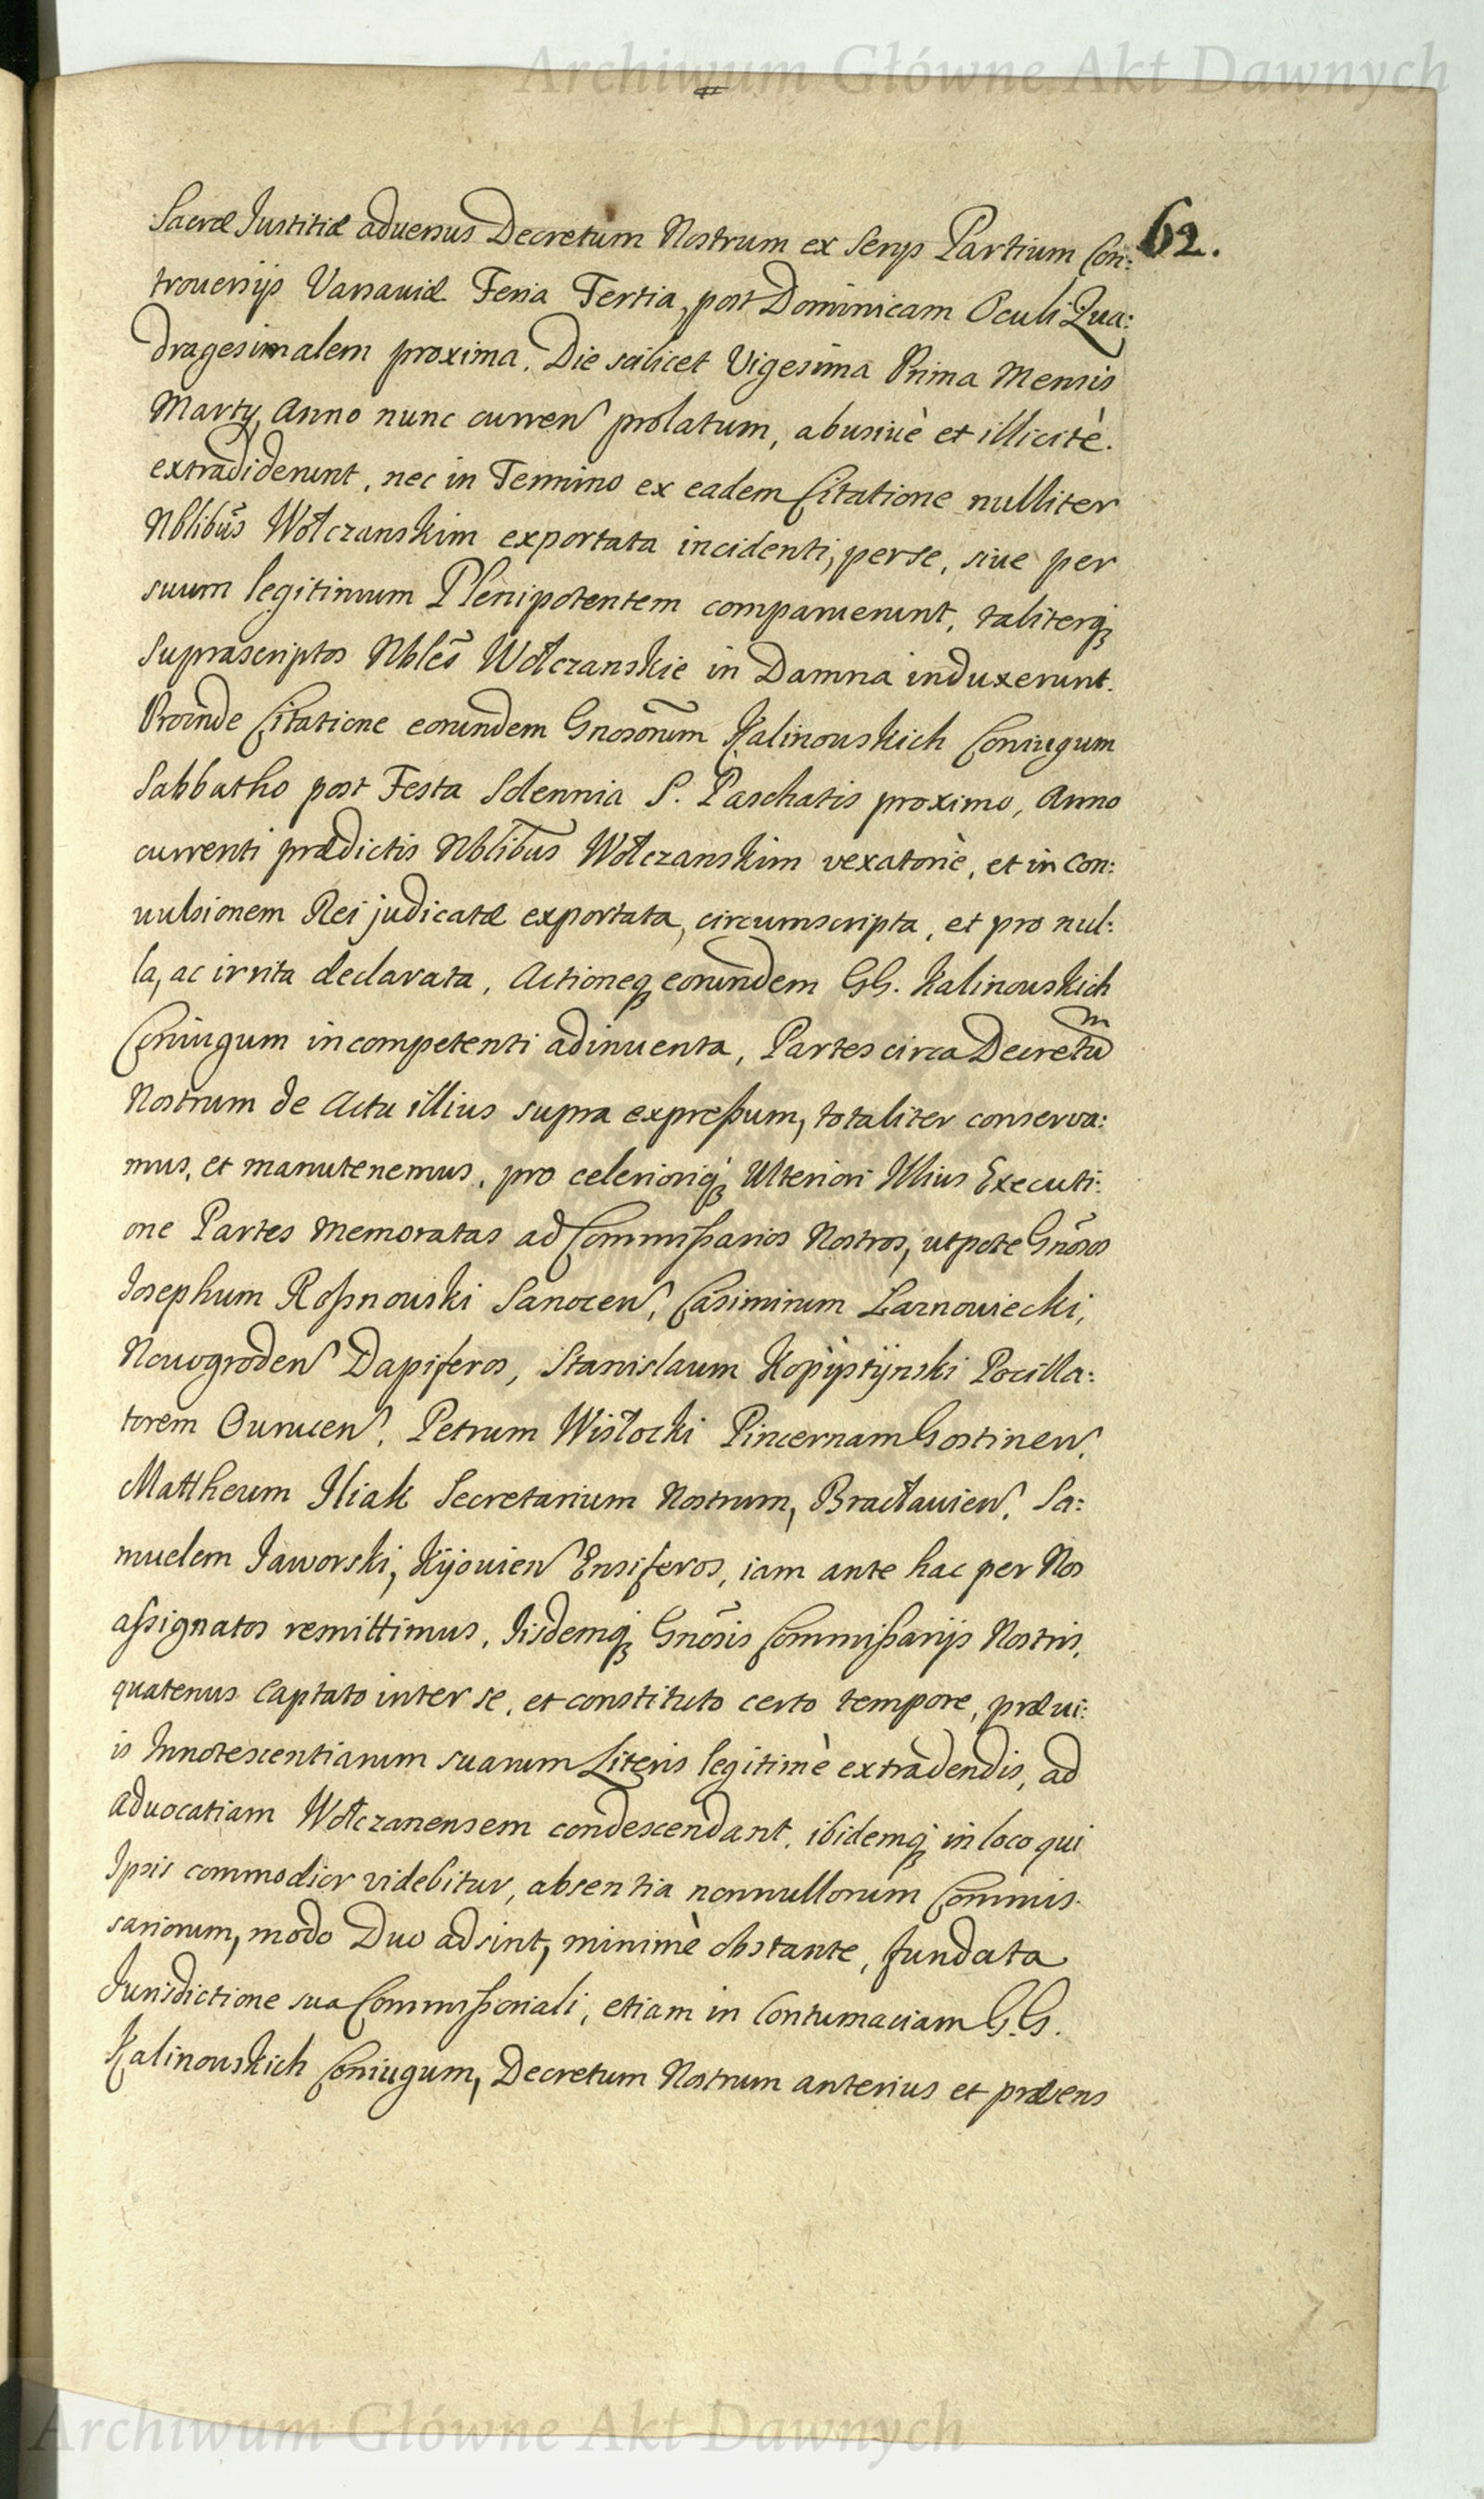 Archiwum Główne Akt Dawnych
62.
Sacræ Justitiæ aduersus Decretum Nostrum ex Serys Partium Con:
trouersijs Varsauiæ Feria Tertia, post Dominicam Oculi Qua:
dragesimalem proxima. Die scilicet Vigesima Prima Mensis
Marty, Anno nunc curren prolatum, abusiuè et illicitè.
extradiderunt, nec in Termino ex eadem Citatione nulliter
Nblibūs Wołczanskim exportata incidenti, per se, siue per
suum legitimum Plenipotentem comparuerunt, taliterq́
suprascriptos Nblēs Wołczanskie in Damna induxerunt.
Proinde Citatione eorundem Gnosorūm Kalinouskich Coniugum
Sabbatho post Festa Solennia S. Paschatis proximo, Anno
currenti prædictis Nblibūs Wołczanskim vexatoriè, et in con:
uulsionem Rei judicatæ exportata, circumscripta, et pro nul:
la, ac irrita declarata, Actioneq́ eorundem GG. Kalinouskich
Coniugum incompetenti adinuenta, Partes circa Decretūm
Nostrum de Actu illius supra expreßum, totaliter conserva:
mus, et manutenemus, pro celerioriq́ Ulteriori Illius Executi:
one Partes Memoratas ad Commißarios Nostros, utpote Gnōsos
Josephum Roßnouski Sanocen, Casimirum Zarnowiecki,
Nowogroden Dapiferos, Stanislaum Kopÿstÿnski Pocilla:
torem Ourucen, Petrum Wisłocki Pincernam Gostinen,
Mattheum Iliak Secretarium Nostrum, Bracłauien, Sa:
muelem Jaworski, Kÿouien Ensiferos, iam ante hac per Nos
aßignatos remittimus, Iisdemq́ Gnōsis Commißarijs Nostris,
quatenus captato inter se, et constituto certo tempore, præui:
is Innotescentiarum suarum Literis legitimè extradendis, ad
aduocatiam Wołczanensem condescendant, ibidemq́ in loco qui
Ipsis commodior videbitur, absentia nonnullorum Commis:
sariorum, modo Duo adsint, minimè obstante, fundata
Jurisdictione sua Commißoriali, etiam in Contumaciam G.G.
Kalinouskich Coniugum, Decretum Nostrum anterius et præsens
Archiwum Główne Akt Dawnych